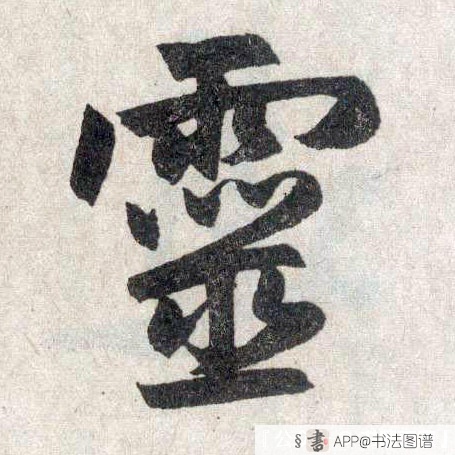 靈
§ 書 APP@书法图谱